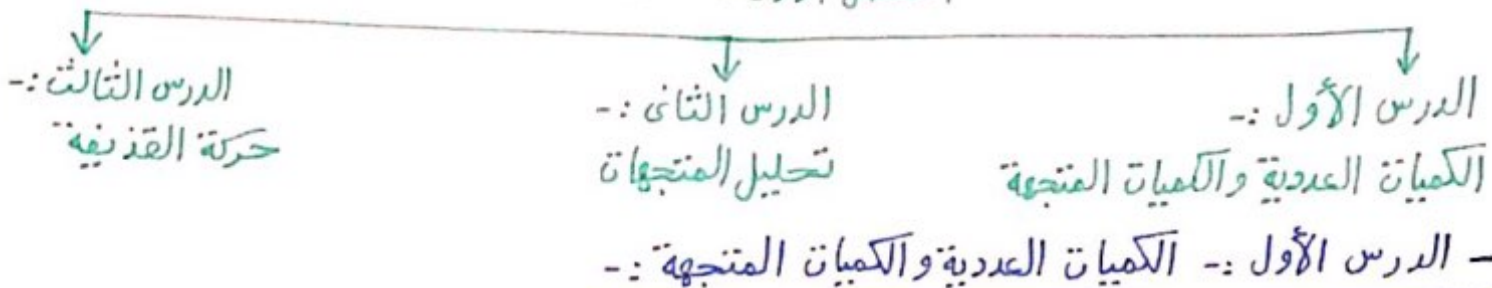 الدرس الأول :-
الكميات العددية والكميات المتجهة
الدرس الثانى :-
تحليل المتجهات
الدرس الثالث :-
حركة القذيفة
- الدرس الأول :- الكميات العددية والكميات المتجهة :-